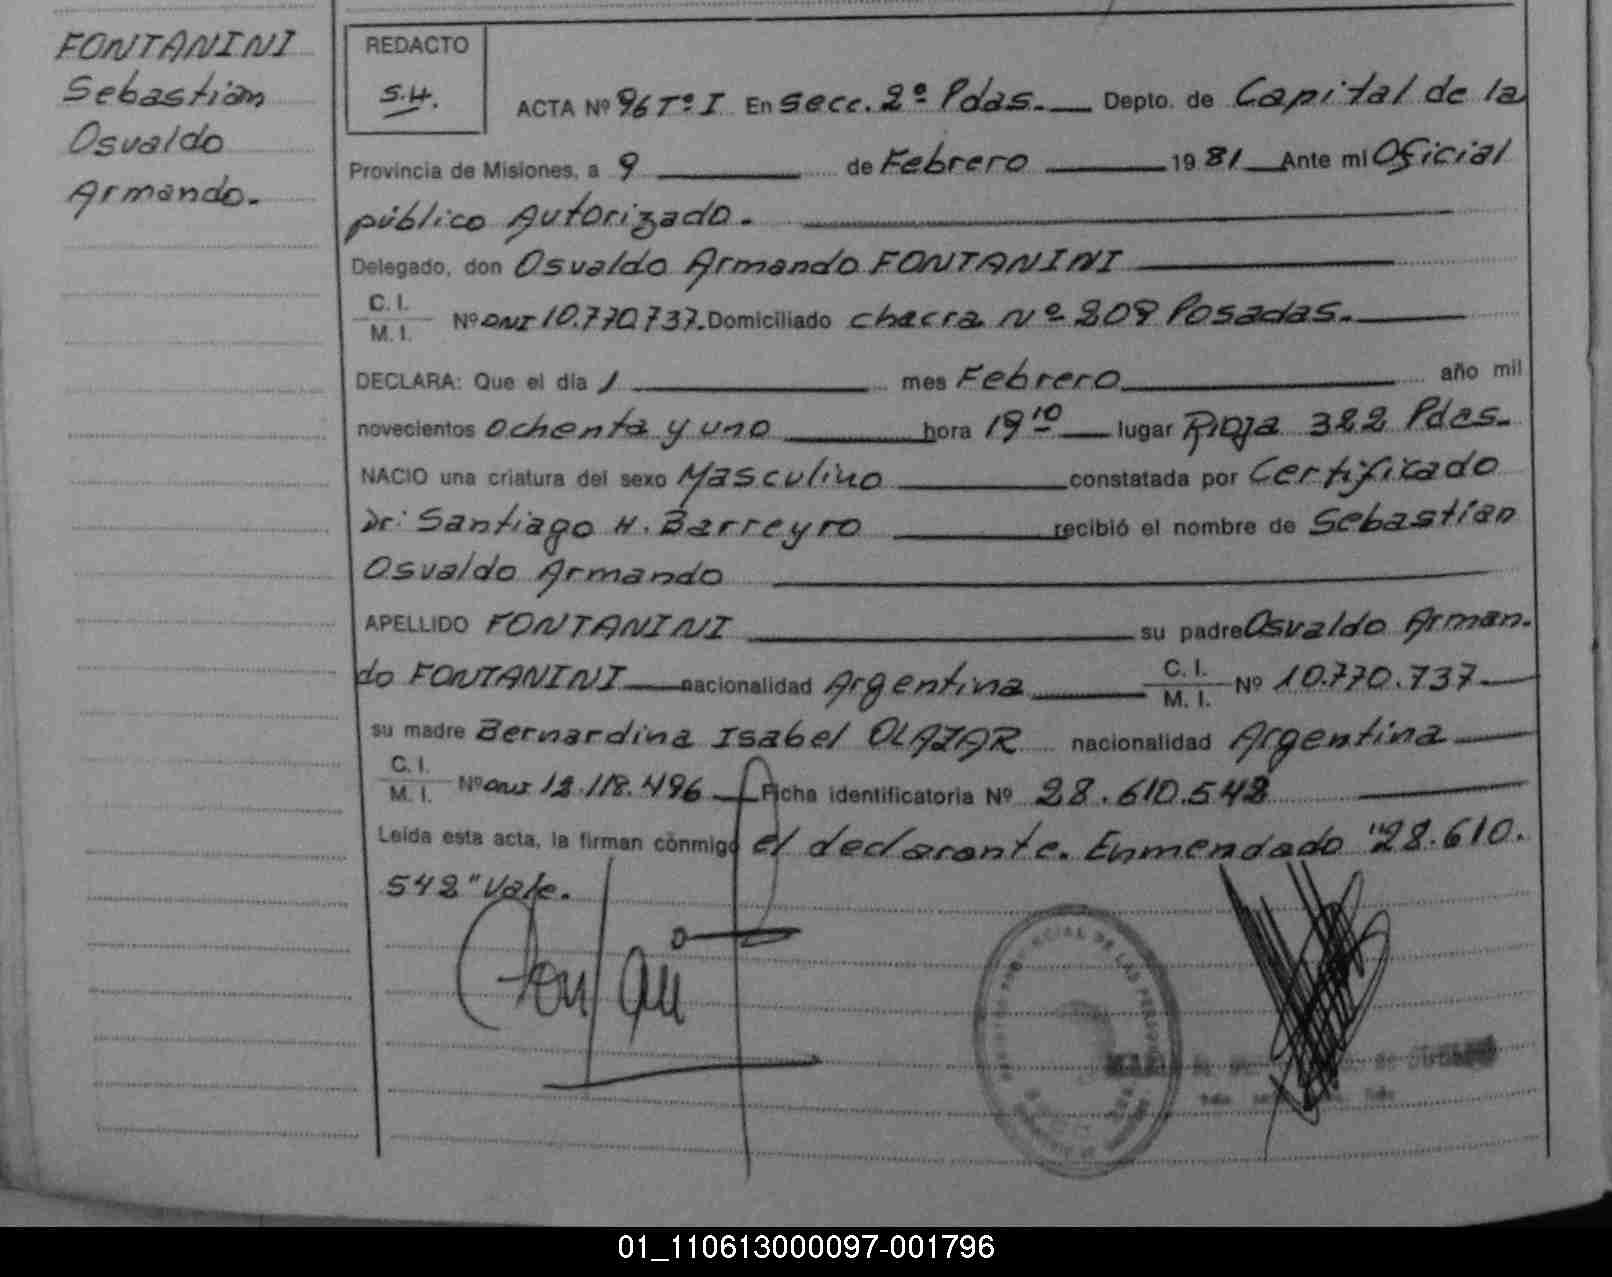 FONTANINI
Sebastian
Osvaldo
Armando.
REDACTO
S.H.
ACTA Nº 96 Tº I En Secc. 2º Pdas. Depto. de Capital de la
Provincia de Misiones, a 9 de Febrero 1981 Ante mi Oficial
público Autorizado.
Delegado, don Osvaldo Armando FONTANINI
C. I.
M. I. Nº DNI 10.770.737. Domiciliado chacra Nº 209 Posadas.
DECLARA: Que el día 1 mes Febrero año mil
novecientos ochenta y uno hora 19 10 lugar Rioja 322 Pdas.
NACIO una criatura del sexo Masculino constatada por Certificado
Dr: Santiago H. Barreyro recibió el nombre de Sebastian
Osvaldo Armando
APELLIDO FONTANINI su padre Osvaldo Arman.
do FONTANINI nacionalidad Argentina C. I.
M. I. Nº 10.770.737
su madre Bernardina Isabel OLAZAR nacionalidad Argentina
C. I.
M. I. Nº DNI 12.118.496 Ficha identificatoria Nº 28.610.542
Leída esta acta, la firman conmigo el declarante. Enmendado "28.610.
542" Vale.
PROVINCIAL DE LAS PERSONAS
01_110613000097-001796